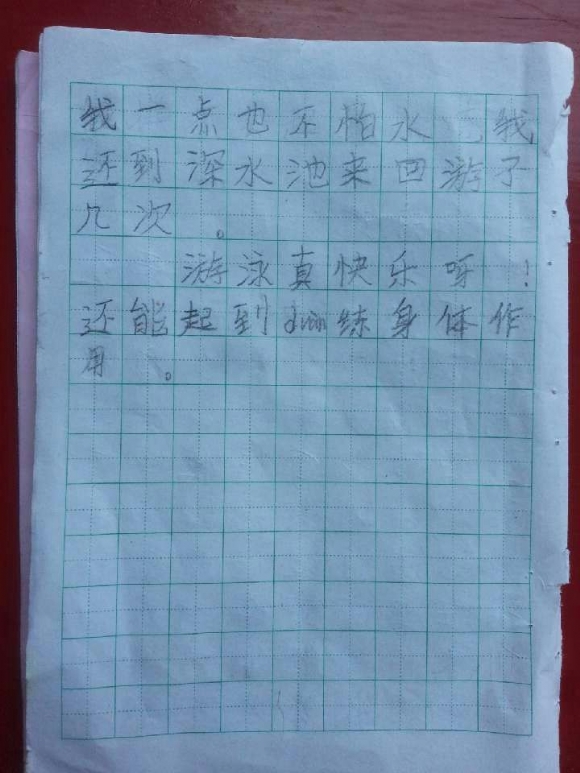 我一点也不怕水，我
还到深水池来回游了
几次。
游泳真快乐呀！
还能起到duan练身体作
用。